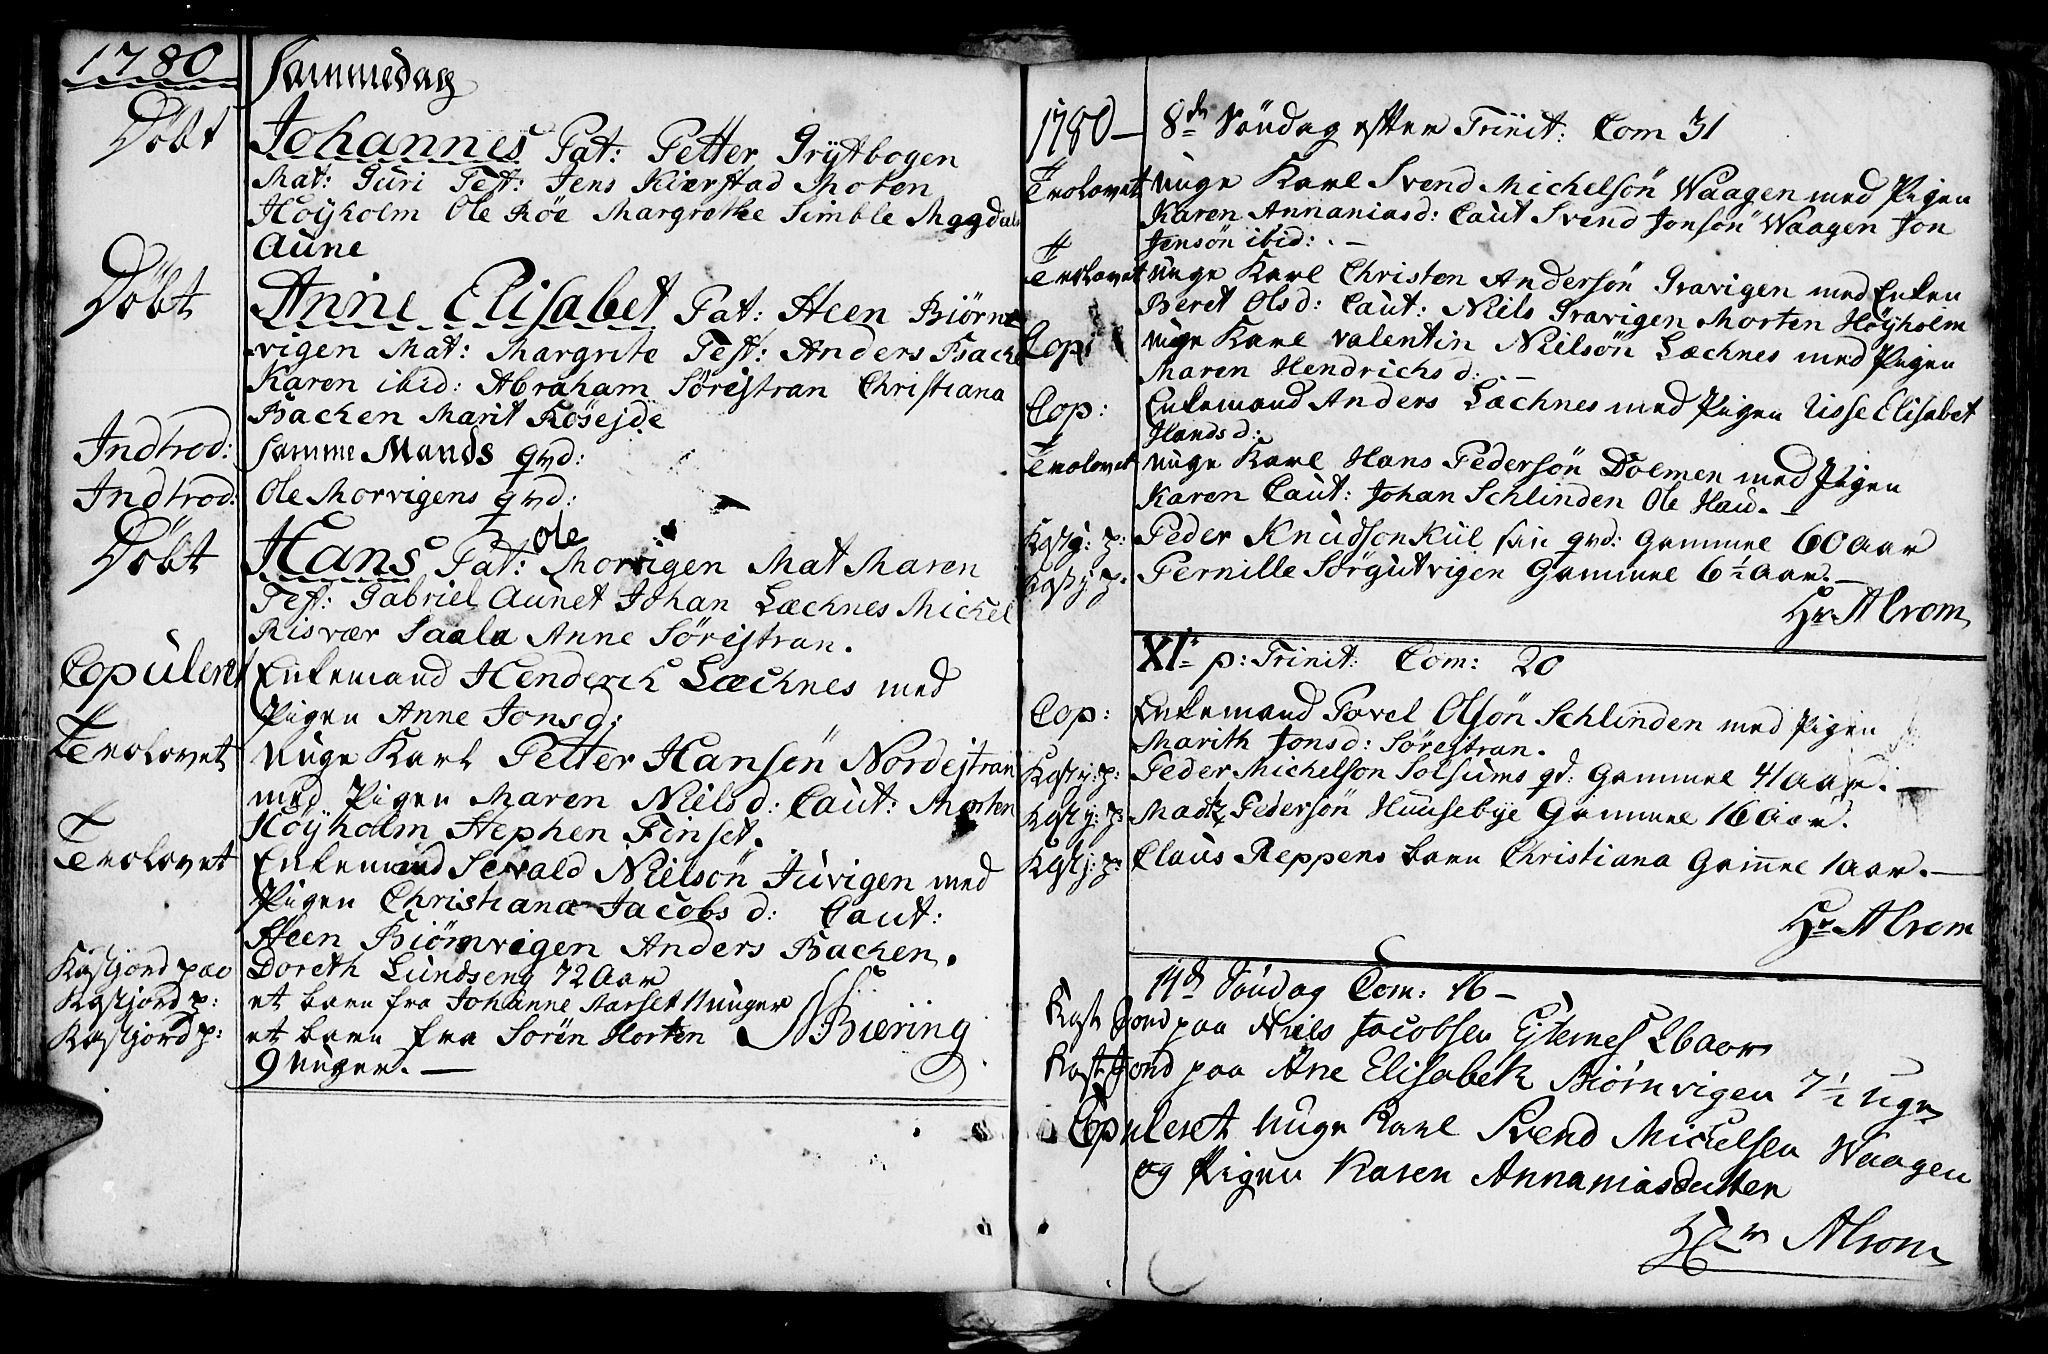 1780
Sammedag
Döbt
Johannes Pat: Petter Grytbogen
Mat: Guri Test: Jens Kierstad Morten
Höyholm Ole Röe Margrethe Simble Magdale
Aune
Döbt
Anne Elisabet Pat: Steen Biörne
vigen Mat: Margrite Test: Anders Bache
Karen ibid: Abraham Sörejstran Christiana
Backen Marit Rösejde
Indtrod: samme Mands qvd:
Indtrod: Ole Morvigens qvd:
Döbt
Hans Pat: ole Morvigen Mat Maren
Test: Gabriel Aunet Johan Læchnes Michel
Risvær Saala Anne Sörejstran.
Copuleret Enkemand Henderck Læchnes med
Pigen Anne Jonsd:
Trolovet Unge Karl Petter Hansön Nordejstran
med Pigen Maren Nielsd: Caut: Morten
Höyholm Stephen Finset.
Trolovet Enkemand Sevald Nielsön Juvigen med
Pigen Christiana Jacobsd: Caut:
Steen Biörnvigen Anders Backen.
Kastjord paa Doreth Lundseng 72 Aar
Kastjord p: et barn fra Johanne Aarset 11 uuger
Kastjord p: et barn fra Sorön Horten
9 Uuger. — N Biering
1780 — 8de Söndag efter Triniit: Com 31
Trolovet unge Karl Svend Michelsön Waagen med Pigen
Karen Annaniasd: Caut Svend Jonsön Waagen Jon
Jensön ibid: . —
Trolovet unge Karl Christen Andersön Gravigen med Enken
Beret Olsd: Caut: Niels Gravigen Morten Höyholm
Cop: unge Karl Valentin Nielsön Læchnes med Pigen
Maren Hendrichsd: . —
Cop: Enkemand Anders Læchnes med Pigen Lisse Elisabet
Handsd:
Trolovet unge Karl Hans Pedersön Dolmen med Pigen
Karen Caut: Johan Schlinden Ole Hau. —
Kastj: p: Peder Knudson Kül sin qvd: Gammel 60 aar
Kastj: p: Pernille Sörgutvigen Gammel 6 1/2 Aar. —
Hr Alrom
XI: p: Trinit: Com: 20
Cop: Enkemand Povel Olsön Schlinden med Pigen
Marith Jonsd: Sörejstran.
Kastj: p: Peder Michelson Solsums qd: Gammel 41 aar. —
Kastj: p: Madtz Pedersön Huusebye Gammel 16 Aar.
Kastj: p: Claus Reppens barn Christiana Gamel 1 aar. —
Hr Alrom
14de Söndag Com: 16 —
Kast Jord paa Niels Jacobsen
Kast Jord paa Ane Elisabeth Biörnvigen 7 1/2 uge
Copuleret Unge Karl Svend Michelsen Waagen
og Pigen Karen Annaniasdatter
Hr Alrom